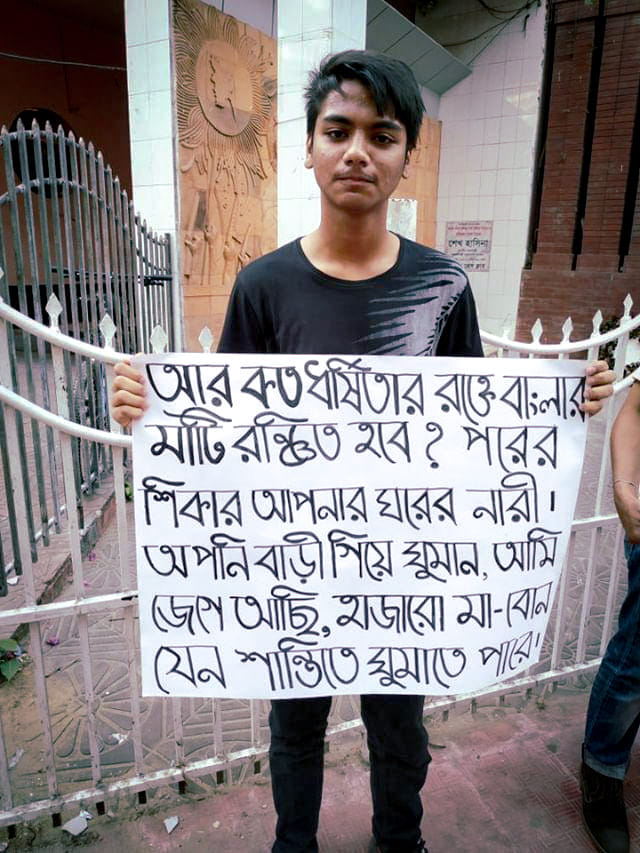 শেখ হাসিনা
আর কত ধর্ষিতার রক্তে বাংলার
মাটি রঞ্জিত হবে? পরের
শিকার আপনার ঘরের নারী।
অপনি বাড়ী গিয়ে ঘুমান, আমি
জেগে আছি, হাজারো মা-বোন
যেন শান্তিতে ঘুমাতে পারে।